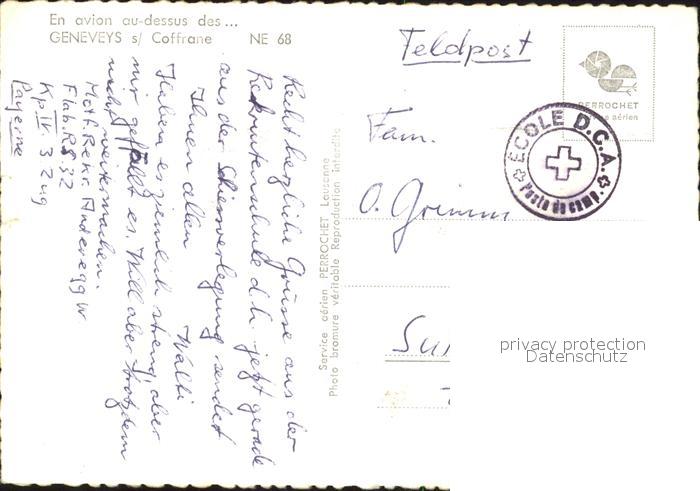 En avion au-dessus des ...
GENEVEYS s/ Coffrane NE 68
Feldpost
PERROCHET
Service aérien
ECOLE D.C.A.
Poste de camp.
Fam.
O. Grimm
Service aérien PERROCHET Lausanne
Photo bromure véritable Reproduction interdite
privacy protection
Datenschutz
Recht herzliche Grüsse aus der
Rekrutenschule d.h. jetzt gerade
aus der Schiessverlegung sendet
Ihnen allen
Walti
Haben es ziemlich streng, aber
mir gefällt es. Will aber trotzdem
nicht weitermachen.
Mot. Rekr. Anderegg W.
Flab. RS 32
Kp IV 3 Zug
Payerne